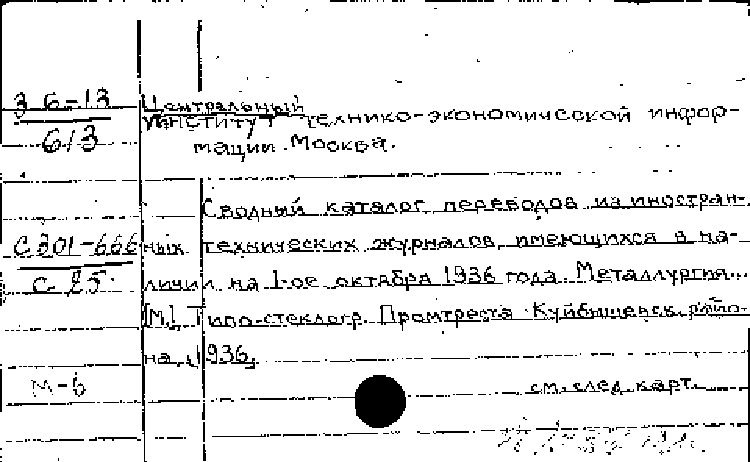 З 6-13
613
Центральный
институт технико-экономической инфор-
мации. Москва.
Сводный каталог переводов из иностран-
С301-666
С 25.
ных технических журналов, имеющихся в на-
личии на 1-ое октября 1936 года. Металлургия...
[М.], Типо-стеклогр. Промтреста Куйбышевск. райо-
на, 1936.
М-б
см. след. карт.